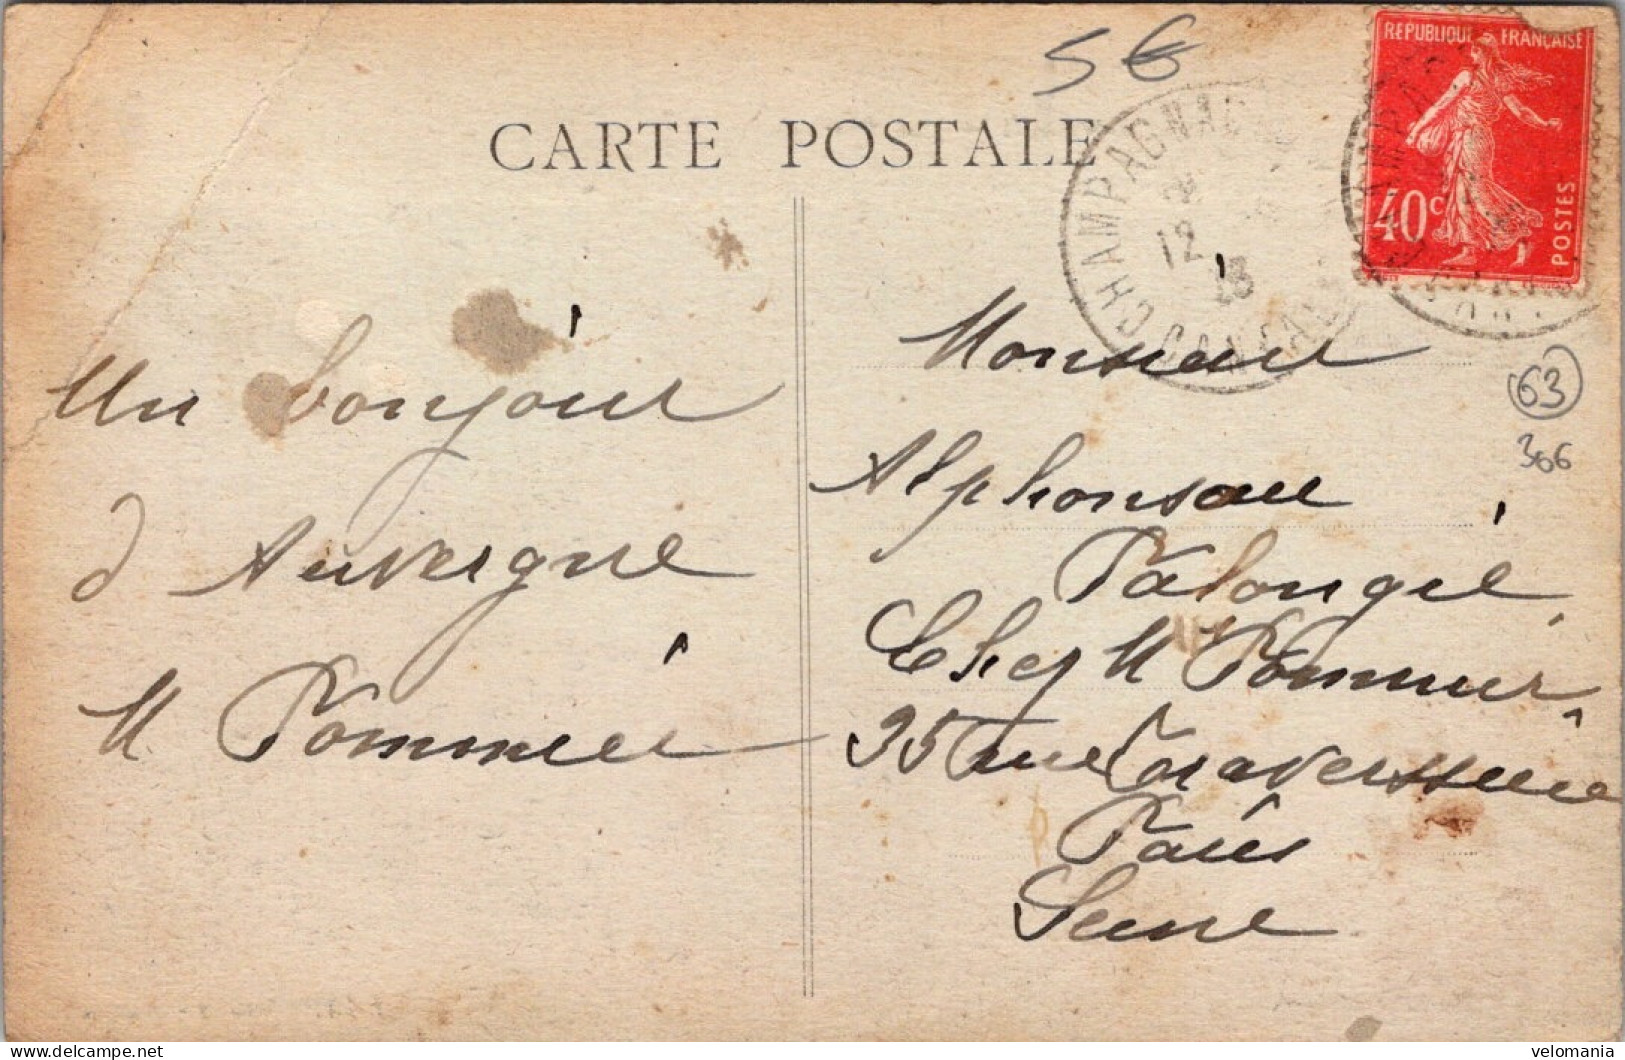 5€
CARTE POSTALE
REPUBLIQUE FRANÇAISE
40c
POSTES
CHAMPAGNAC
12
CANTAL
63
366
Un bonjour
d Auvergne
M Pommier
Monsieur
Alphonse
Chez M Pommier
35 rue Traversière
Paris
Seine
velomania